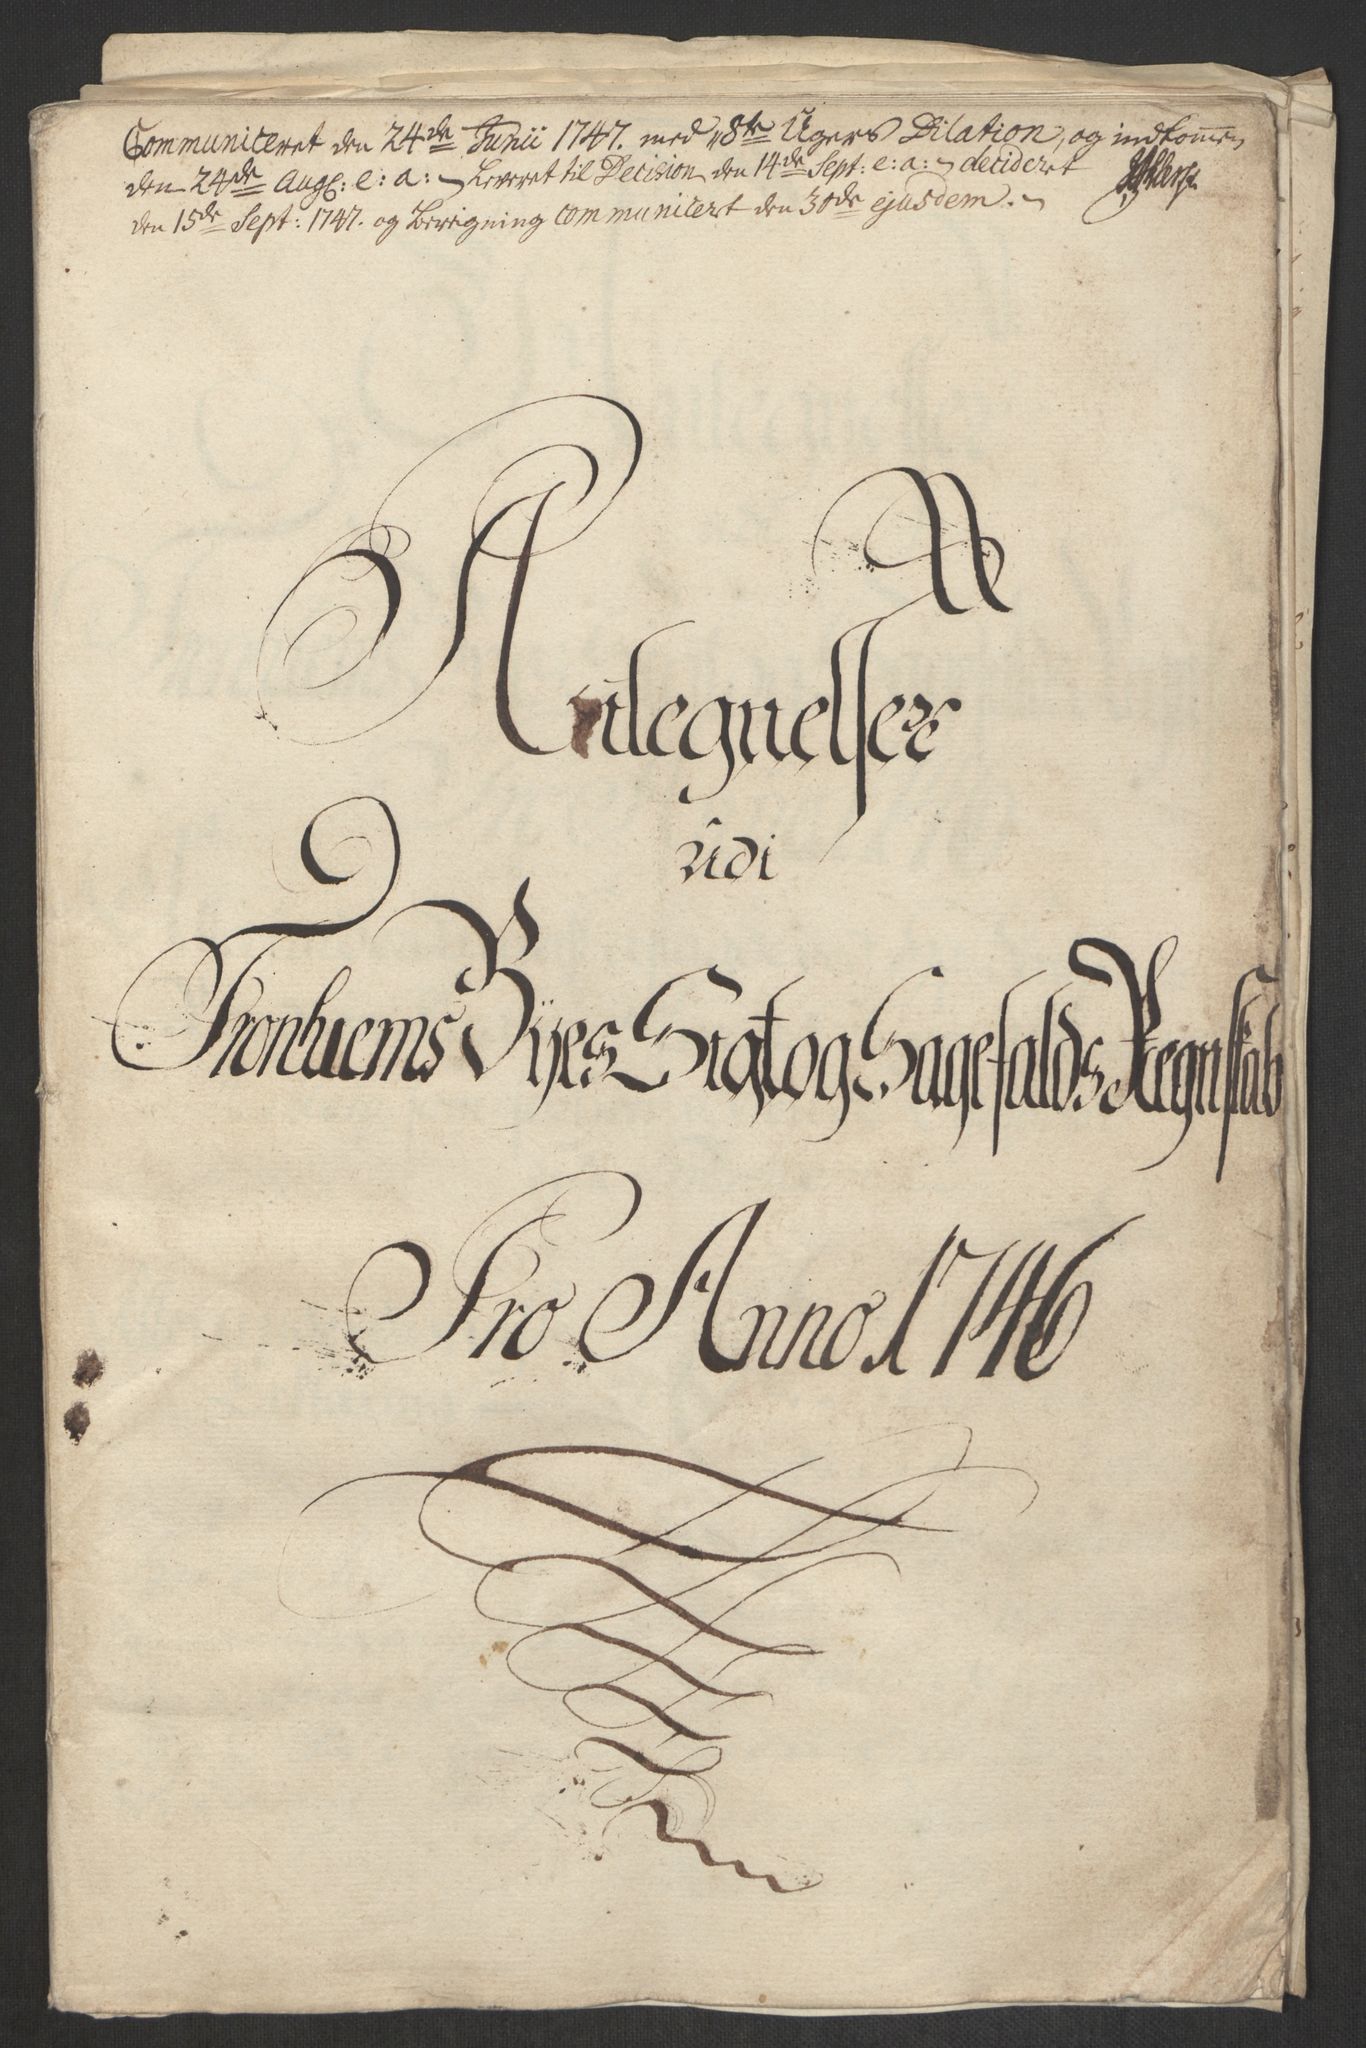 Communiceret den 24de Junii 1747. med 8te Ugers Dilation, og indkommen
den 24de Aug: e: a: Leveret til Decision den 14de Sept: e: a: decideret
den 15de Sept: 1747. og Beregning communicert den 30de ejusdem.
Antegnelser
udi
Tronhiems Byes Sigt og Sagefalds Regnskab
Pro Anno 1746